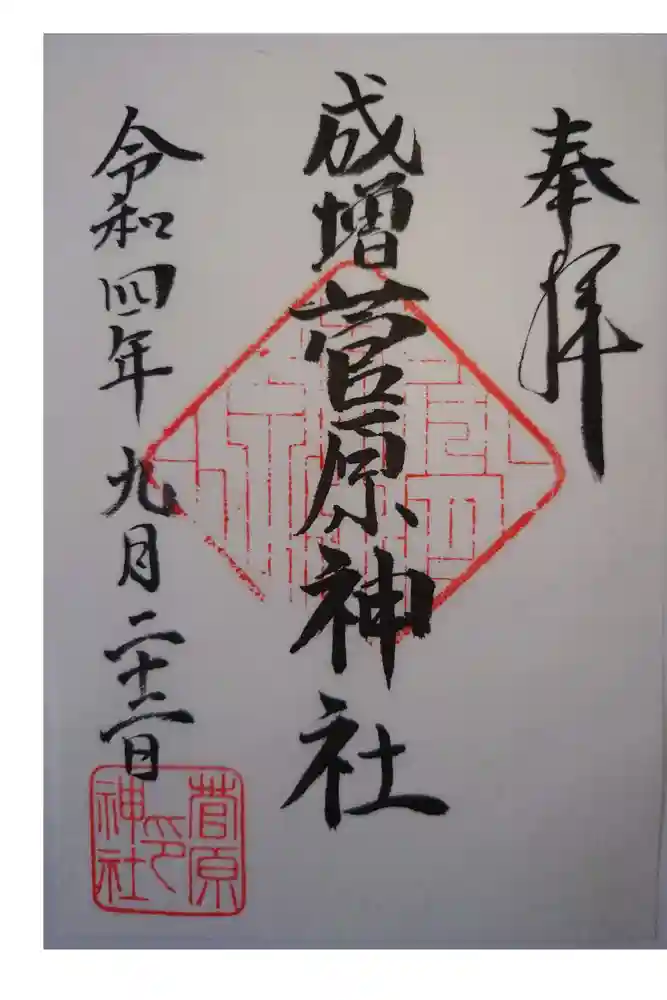 奉拝
成増菅原神社
令和四年九月二十二日
菅原
印
神社